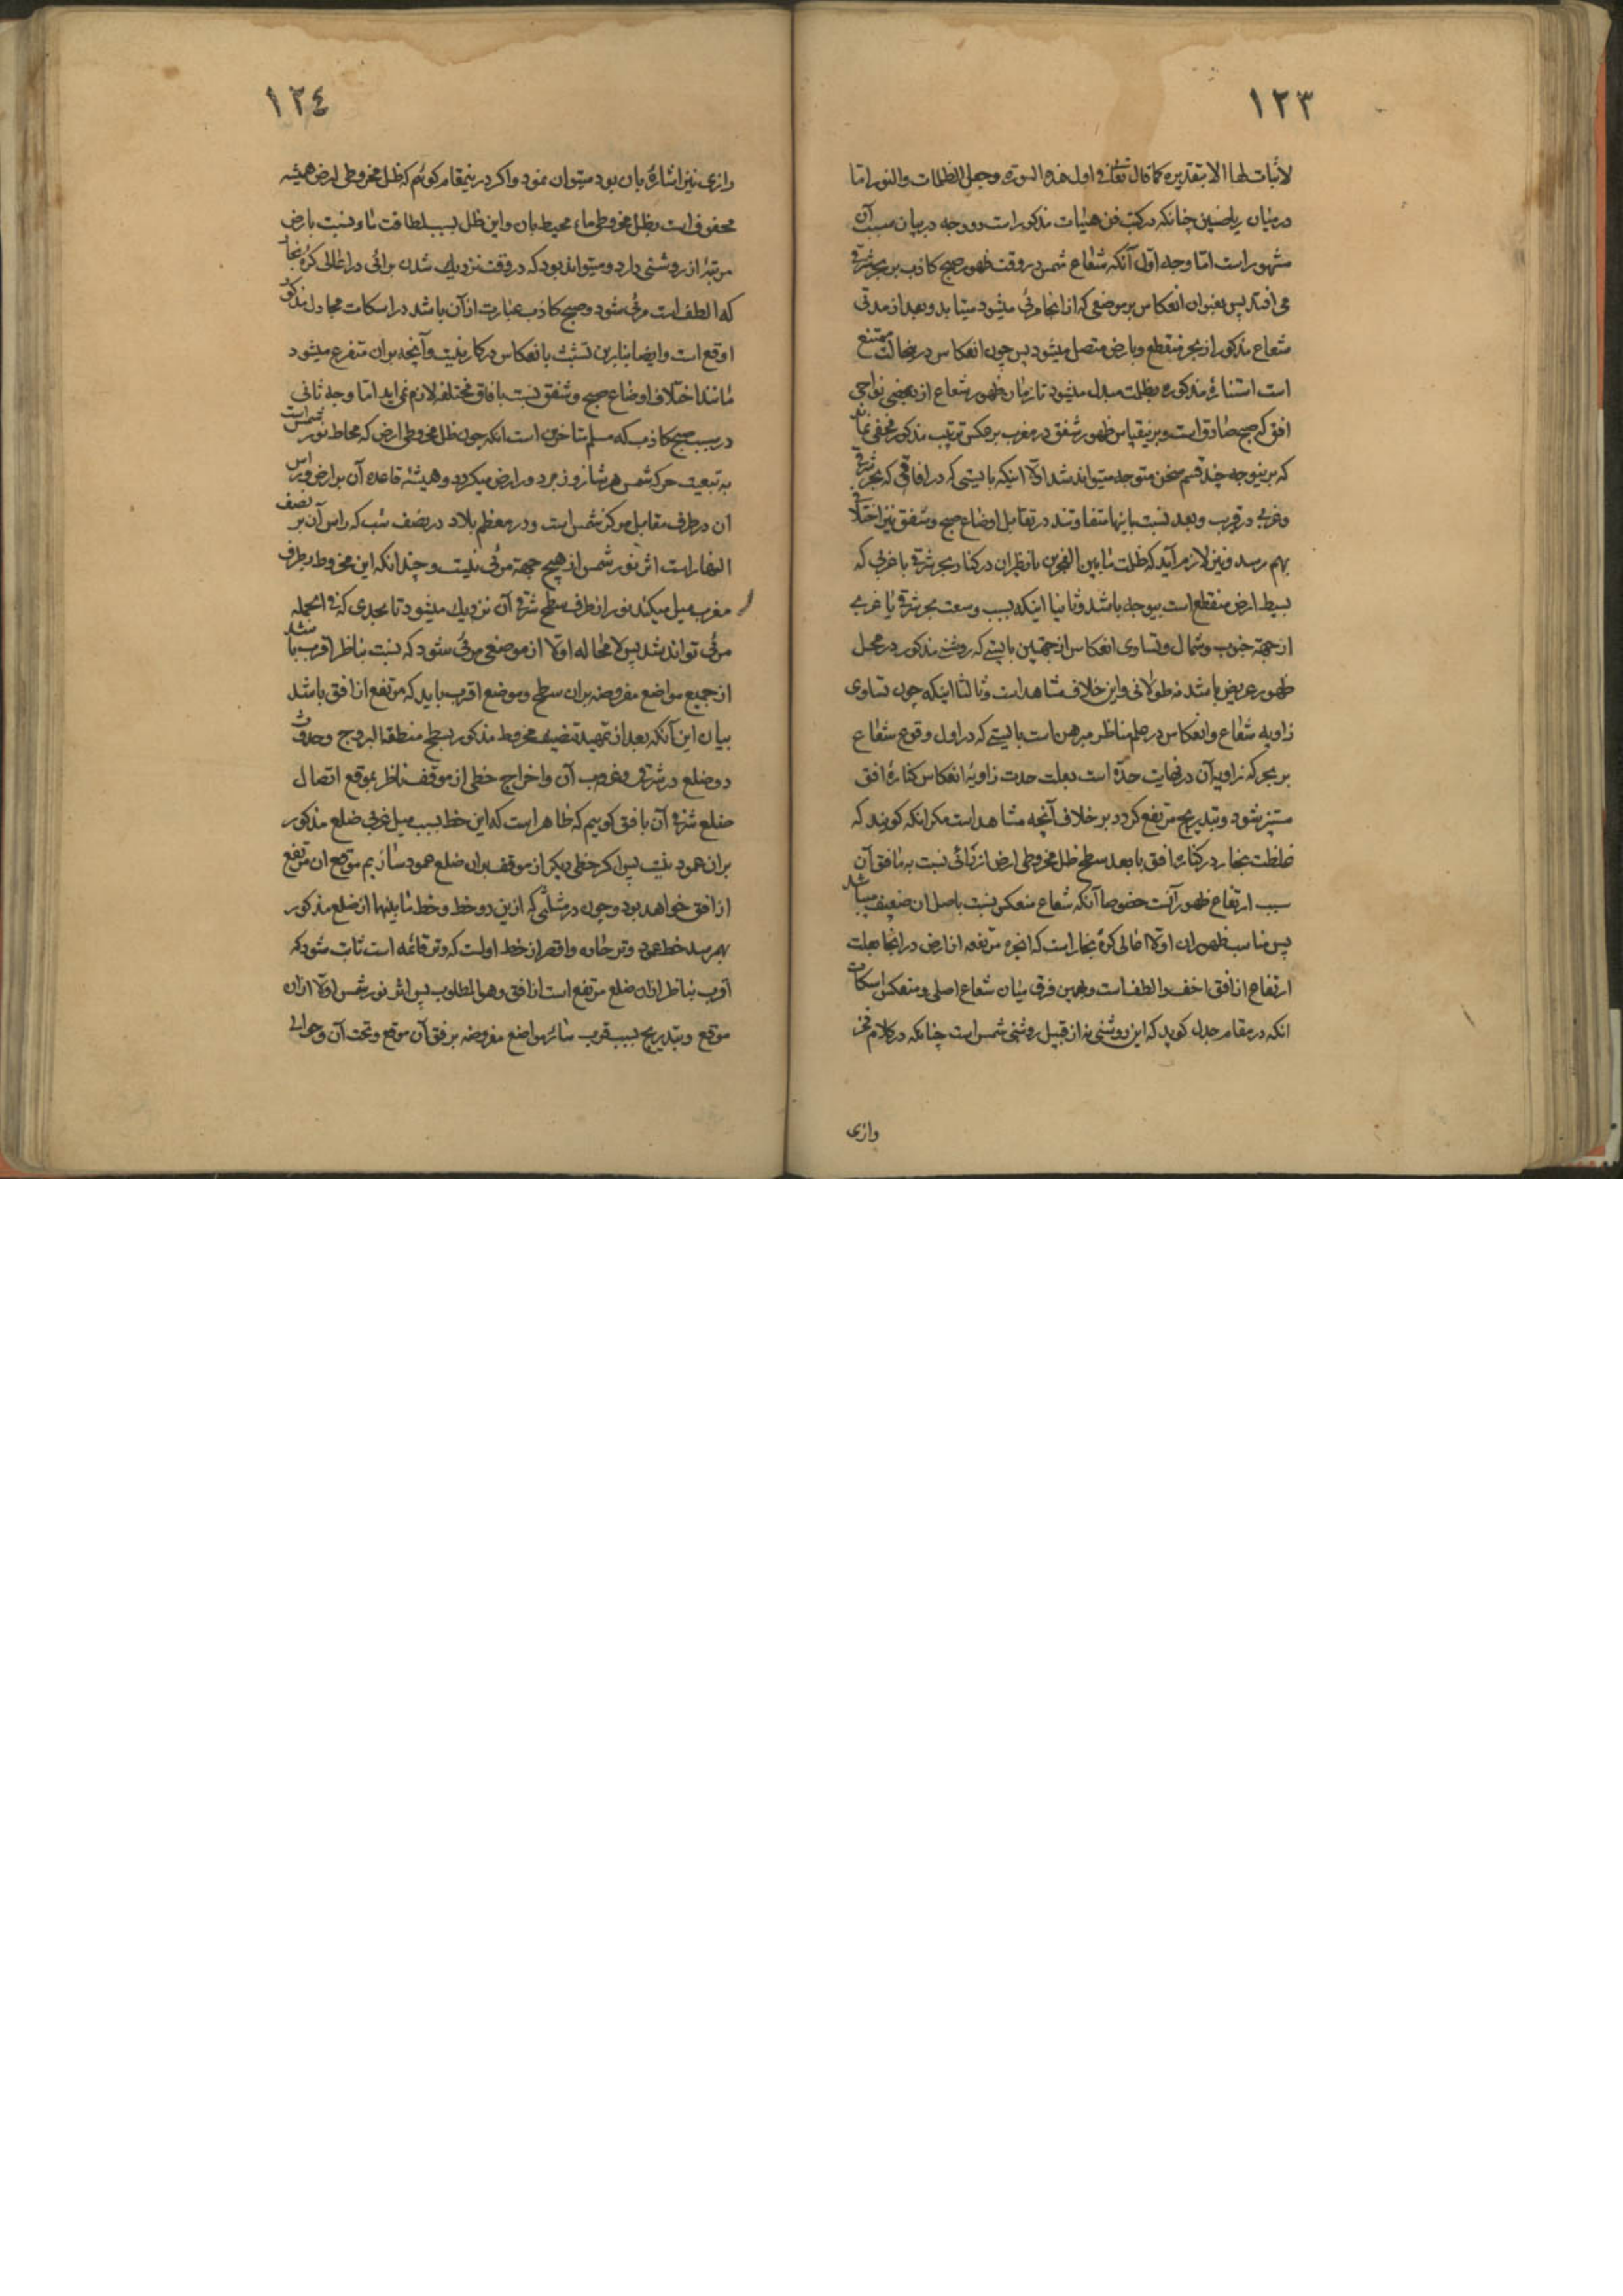 ١٢٣
لاثبات لها الا بتقدیره کما قال تعالی فی اول هذه السورة وجعل الظلمات والنور اما
در میان ریاضیین چنانکه در کتب فن هیئات مذکور است دو وجه در بیان سبب آن
مشهور است اما وجه اول آنکه شعاع شمس در وقت ظهور صبح کاذب بر بحر شرقی
می افتد پس بعنوان انعکاس بر موضعی که از انجا مرئی میشود میتابد و بعد از مدتی
شعاع مذکور از بحر منقطع و بارض متصل میشود پس چون انعکاس در ینحالت ممتنع
است استنارهٔ مذکوره بظلمت مبدل میشود تا زمان ظهور شعاع از بعضی نواحی
افق که صبح صادق است و بر ینقیاس ظهور شفق در مغرب بر عکس ترتیب مذکور مخفی نماند
که بر ینوجه چند قسم سخن متوجه میتواند شد اولا اینکه بایستی که در افاقی که بحر شرقی
و غربی در قرب و بعد نسبت باینها متفاوتند در تقابل اوضاع صبح و شفق نیز اختلاف
بهم رسد و نیز لازم آید که ظلمت مابین الفجرین با ناظران در کنار بحر شرقی یا غربی که
بسیط ارض منقطع است بیوجه باشد و ثانیا اینکه بسبب وسعت بحر شرقی یا غربی
از جهة جنوب و شمال و تساوی انعکاس از جهتین بایستی که روشنی مذکور در محل
ظهور عریض باشد نه طولانی و این خلاف مشاهد است و ثالثا اینکه چون تساوی
زاویه شعاع و انعکاس در علم مناظر مبرهن است بایستی که در اول وقوع شعاع
بر بحر که زاویه آن در نهایت حدّه است بعلت حدت زاویهٔ انعکاس کنارهٔ افق
مستنیر شود و بتدریج مرتفع کردد بر خلاف آنچه مشاهد است مکر انکه کویند که
غلظت بخار در کنارهٔ افق با بعد سطح ظل مخروطی ارض از رائی نسبت به مافق آن
سبب ارتفاع ظهور آنست خصوصا آنکه شعاع منعکس نسبت باصل ان ضعیف میباشد
پس مناسب ظهور ان اولا اعالی کرهٔ بخار است که ابخره مرتفعه از ارض در انجا بعلت
ارتفاع از افق اخف و الطف است و بهمین فرق میان شعاع اصلی و منعکس اسکات
انکه در مقام جدل کوید که این روشنی نه از قبیل روشنی شمس است چنانکه در کلام فخر
وازی
١٢٤
رازی نیز اشارهٔ بان بود میتوان نمود و اکر در ینمقام کوئیم که ظل مخروطی ارض همیشه
محفوف است بظل مخروطی ماء محیط بان و این ظل بسبب لطافت ماء و نسبت بارض
مرتبهٔ از روشنی دارد و میتواند بود که در وقت نزدیک شدن برائی در اعالی کرهٔ بخار
که الطف است مرئی شود و صبح کاذب عبارت از آن باشد در اسکات مجادل مذکور
اوقع است و ایضا بنابرین تشبث بانعکاس در کار نیست و آنچه بران متفرع میشود
مانند اختلاف اوضاع صبح و شفق نسبت بافاق مختلفه لازم نمی اید اما وجه ثانی
در سبب صبح کاذب که مسلم متاخرین است انکه چون ظل مخروطی ارض که محاط نور شمس است
به تبعیت حرکة شمس هر شبانروز بر دور ارض میکردد و همیشه قاعده آن بر ارض و راس
ان در طرف مقابل مرکز شمس است و در معظم بلاد در نصف شب که راس آن بر نصف
النهار است اثر نور شمس از هیچ جهة مرئی نیست و چندانکه این مخروط بطرف
مغرب میل میکند نور از طرف سطح شرقی آن نزدیک میشود تا بحدی که فی الجمله
مرئی تواند شد پس لا محاله اولا از موضعی مرئی شود که نسبت بناظر اقرب باشد
از جمیع مواضع مفروضه بران سطح و موضع اقرب باید که مرتفع از افق باشد
بیان این آنکه بعد از تمهید تنصیف مخروط مذکور بسطح منطقة البروج و حدوث
دو ضلع در شرقی و غربی آن و اخراج خطی از موقف ناظر بموقع اتصال
ضلع شرقی آن بافق کوییم که ظاهر است که این خط بسبب میل غربی ضلع مذکور
بران عمود نیست پس اکر خطی دیکر از موقف بران ضلع عمود سازیم موقع ان مرتفع
از افق خواهد بود و چون در مثلثی که از ین دو خط و خط مابینهما از ضلع مذکور
بهم رسد خط عمود وتر حاده و اقصر از خط اولست که وتر قائمه است ثابت شود که
اقرب بناظر ازان ضلع مرتفع است از افق و هو المطلوب پس اثر نور شمس اولا ازان
موقع و بتدریج بسبب قرب سائر مواضع مفروضه بر فوق آن موقع و تحت آن و حوالی